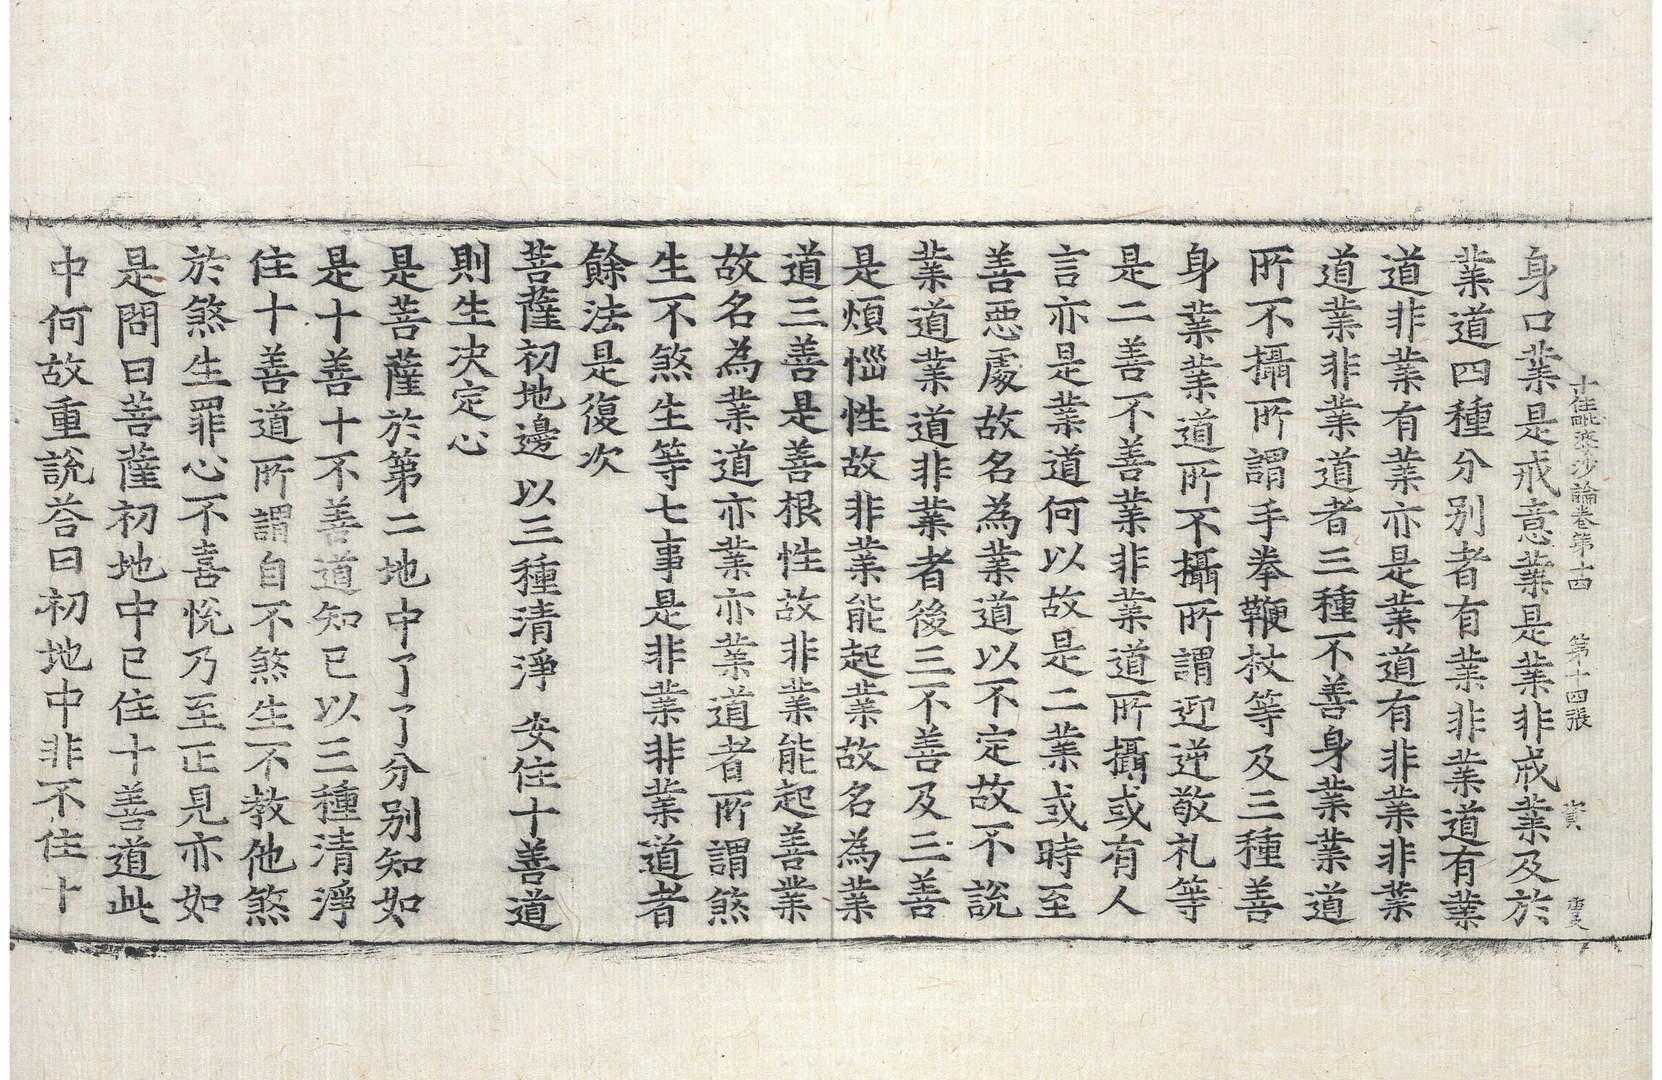 十住毗婆沙論卷第十四　第十四張　資
身口業是戒意業是業非戒業及於
業道四種分別者有業非業道有業
道非業有業亦是業道有非業非業
道業非業道者三種不善身業業道
所不攝所謂手拳鞭杖等及三種善
身業業道所不攝所謂迎逆敬礼等
是二善不善業非業道所攝或有人
言亦是業道何以故是二業或時至
善惡處故名為業道以不定故不說
業道業道非業者後三不善及三善
是煩惱性故非業能起業故名為業
道三善是善根性故非業能起善業
故名為業道亦業亦業道者所謂煞
生不煞生等七事是非業非業道者
餘法是復次
菩薩初地邊　以三種清淨　安住十善道
則生決定心
是菩薩於第二地中了了分別知如
是十善十不善道知已以三種清淨
住十善道所謂自不煞生不教他煞
於煞生罪心不喜悅乃至正見亦如
是問曰菩薩初地中已住十善道此
中何故重說荅曰初地中非不住十